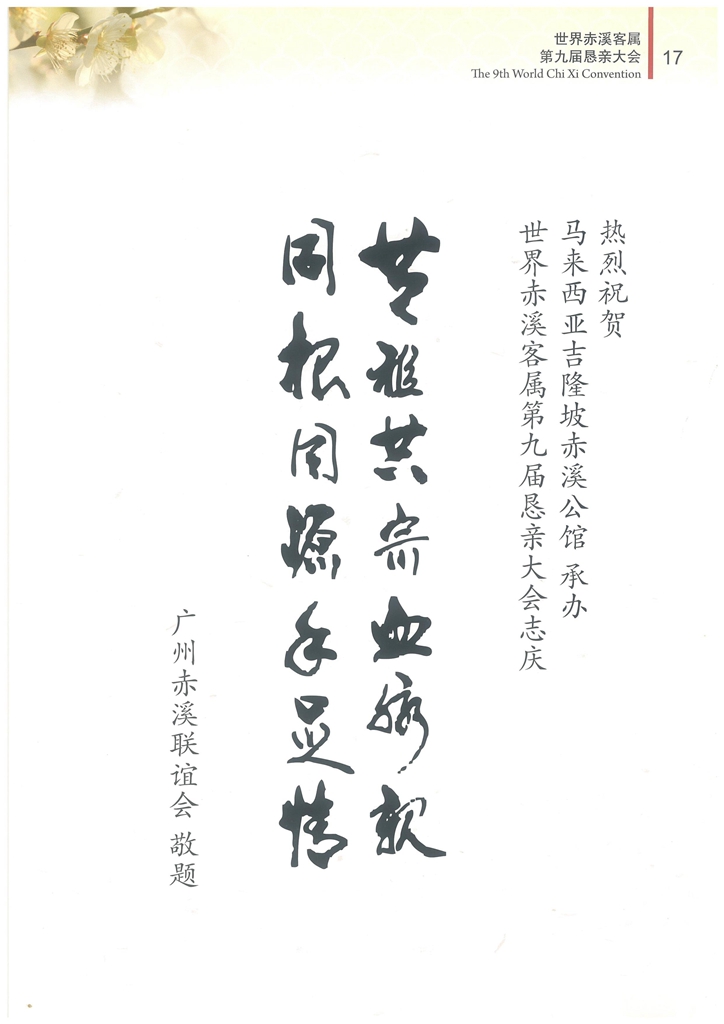 世界赤溪客属
第九届恳亲大会
The 9th World Chi Xi Convention
17
热烈祝贺
马来西亚吉隆坡赤溪公馆 承办
世界赤溪客属第九届恳亲大会志庆
共祖共宗血脈親
同根同源手足情
广州赤溪联谊会 敬题